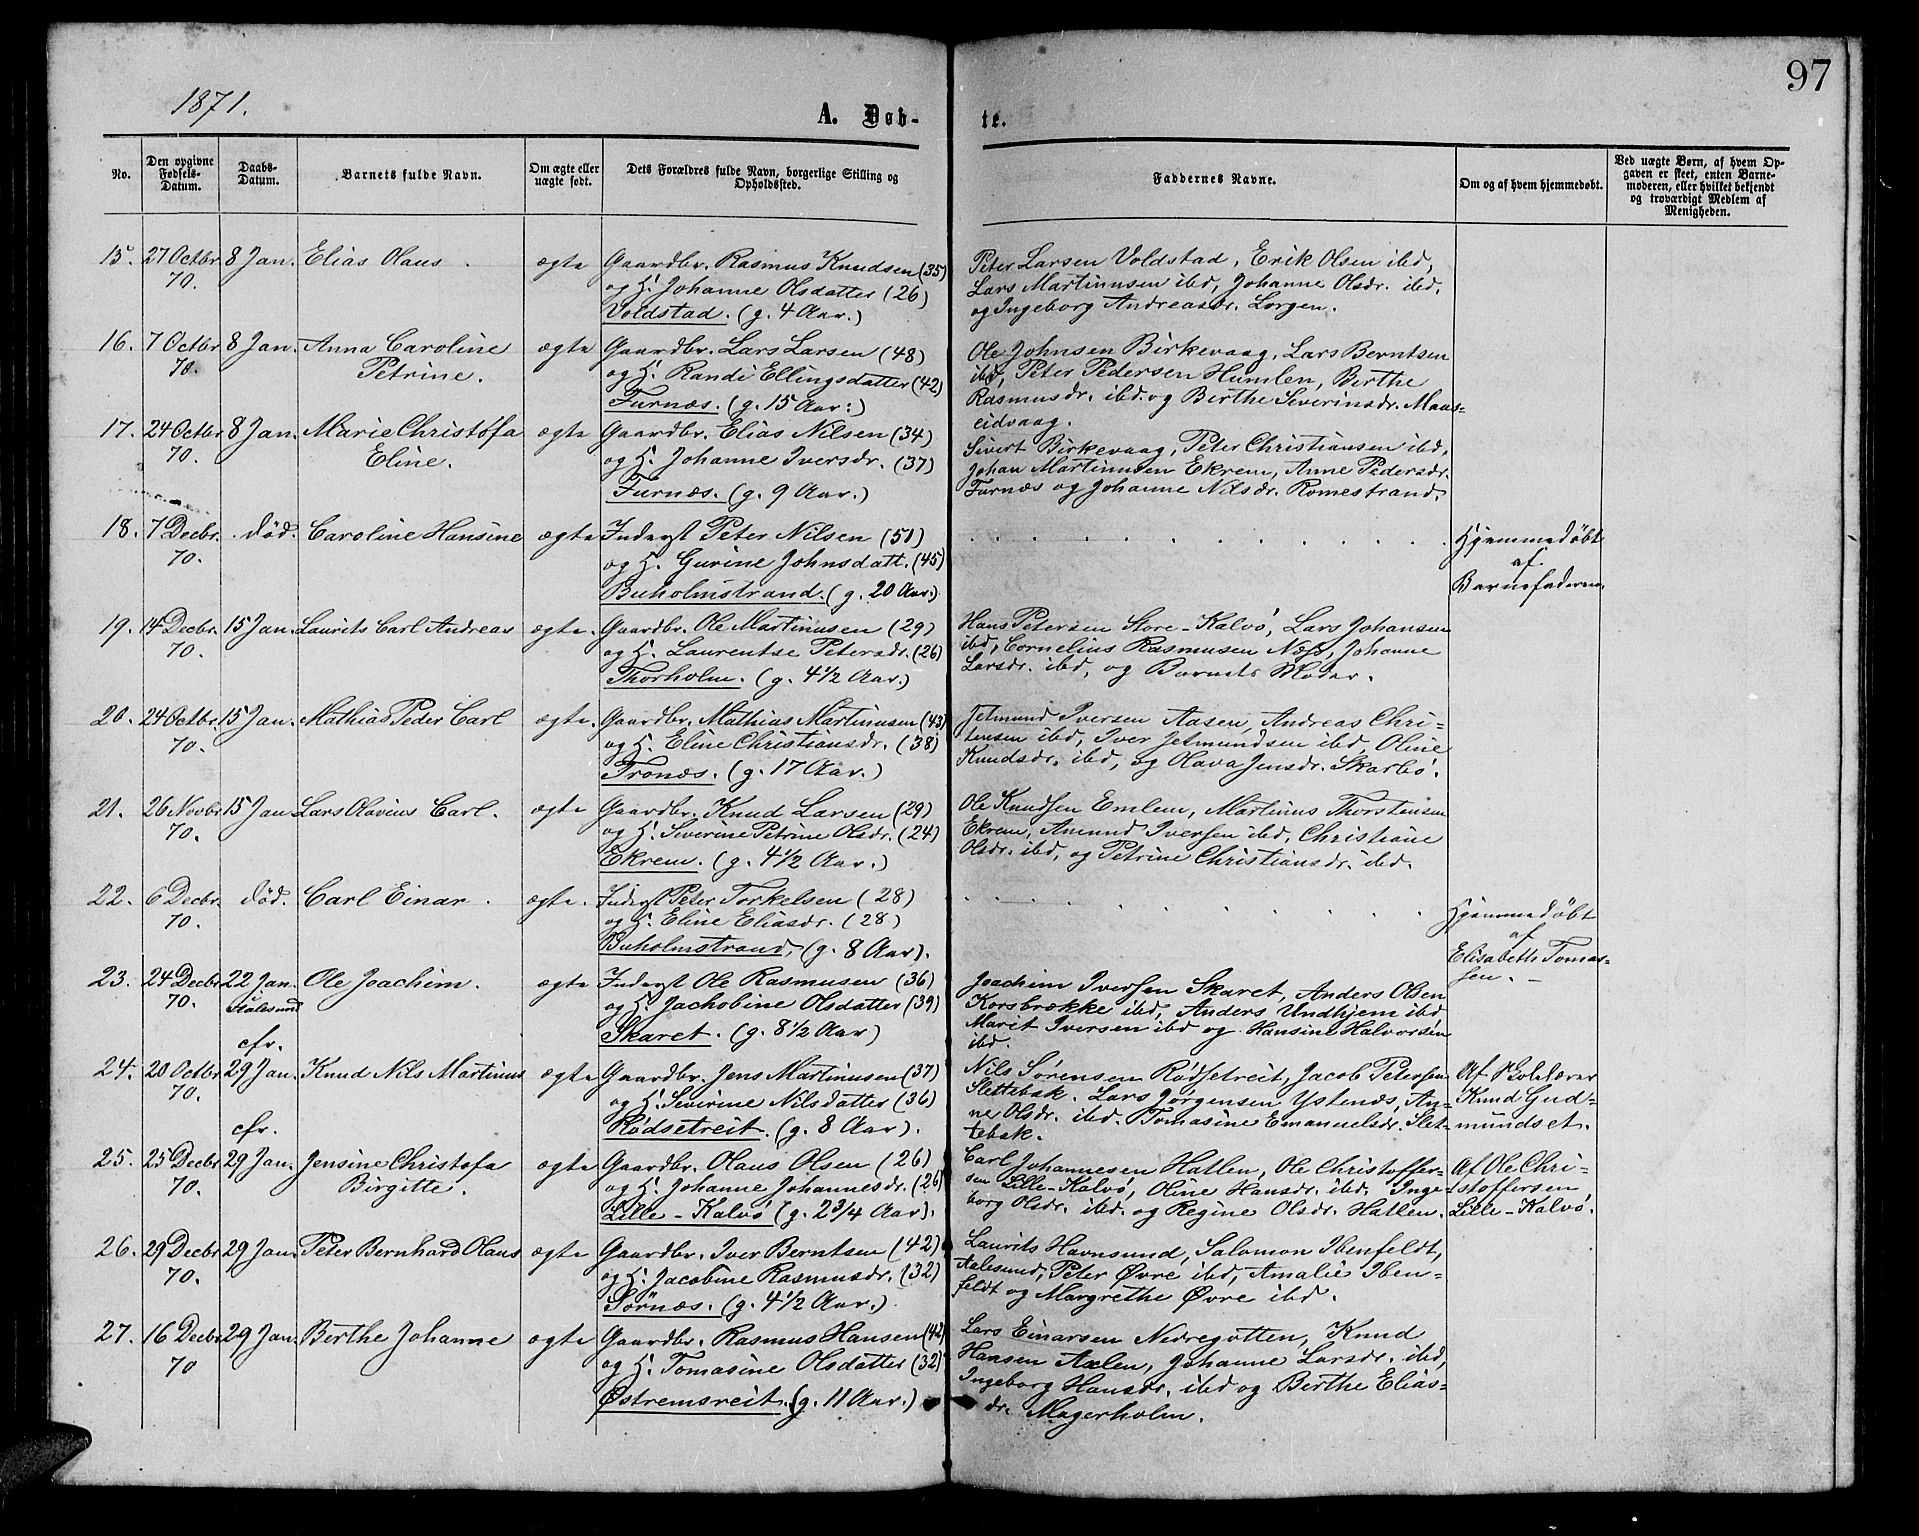 1871.
A. Døb-
te.
97
No.
Den opgivne Fødsels-Datum.
Daabs-Datum.
Barnets fulde Navn.
Om ægte eller uægte født.
Dets Forældres fulde Navn, borgerlige Stilling og Opholdssted.
Faddernes Navne.
Om og af hvem hjemmedøbt.
Ved uægte Børn, af hvem Op-
gaven er skeet, enten Barne-
moderen, eller hvilket bekjendt
og troværdigt Medlem af
Menigheden.
15. 27 Octbr 8 Jan. Elias Olaus. ægte Gaardbr. Rasmus Knudsen (35)
70. og H. Johanne Olsdatter (26)
Voldstad. (g. 4 Aar.)
Peter Larsen Voldstad, Erik Olsen ibd,
Lars Martinusen ibd, Johanne Olsdr. ibd.
og Ingeborg Andreasdr. Lorgen.
16. 7 Octbr 8 Jan. Anna Caroline ægte Gaardbr. Lars Larsen (48)
70. Petrine. og H. Randi Ellingsdatter (42)
Furnæs. (g. 15 Aar.)
Ole Johnsen Birkevaag, Lars Berntsen
ibd, Peter Pedersen Humlen, Berthe
Rasmusdr. ibd. og Berthe Severinsdr. Maus-
eidvaag.
17. 24 Octbr 8 Jan. Marie Christofa ægte Gaardbr. Elias Nilsen (34)
70. Eline. og H. Johanne Iversdr. (37)
Furnæs. (g. 9 Aar.)
Sivert Birkevaag, Peter Christiansen ibd,
Johan Martinusen Ekrem, Anne Pedersdr.
Furnæs og Johanne Nilsdr. Romestrand.
18. 7 Decbr. død. Caroline Hansine ægte Inderst Peter Nilsen (51)
70. og H. Gurine Johnsdatt. (45)
Buholmstrand. (g. 20 Aar.)
Hjemmedøbt
af
Barnefaderen.
19. 14 Decbr. 15 Jan. Laurits Carl Andreas ægte. Gaardbr. Ole Martinusen (29)
70. og H. Laurentse Petersdr. (26)
Thorholm. (g. 4 1/2 Aar.)
Hans Petersen Store-Kalvø, Lars Johansen
ibd, Cornelius Rasmusen Næss, Johanne
Larsdr. ibd, og Barnets Moder.
20. 24 Octbr. 15 Jan. Mathias Peder Carl ægte. Gaardbr. Mathias Martinusen (43)
70. og H. Eline Christiansdr. (38)
Tronæs. (g. 17 Aar.)
Jetmund Iversen Aasen, Andreas Chri-
tensen ibd, Iver Jetmundsen ibd, Oline
Knudsdr. ibd, og Olava Jensdr. Skarbø.
21. 26 Novbr 15 Jan Lars Olavius Carl. ægte Gaardbr. Knud Larsen (29)
70. og H. Severine Petrine Olsdr. (24)
Ekrem. (g. 4 1/2 Aar.)
Ole Knudsen Emlem, Martinus Thorstensen
Ekrem, Amund Iversen ibd, Christiane
Olsdr. ibd, og Petrine Christiansdr. ibd.
22. 6 Decbr. død. Carl Einar. ægte. Inderst Peter Torkelsen (28)
70. og H. Eline Eliasdr. (28)
Buholmstrand, (g. 8 Aar).
Hjemmedøbt
af
Elisabeth Tomas-
sen. –
23. 24 Decbr 22 Jan. Ole Joachim. ægte Inderst Ole Rasmusen (36)
70. og H. Jachobine Olsdatter (39)
Skaret. (g. 8 1/2 Aar)
Joachim Iversen Skaret, Anders Olsen
Korsbrække ibd, Anders Undhjem ibd
Marit Iversen ibd og Hansine Halvorsen
ibd.
cfr.
24. 20 Octbr 29 Jan. Knud Nils Martinus ægte Gaardbr. Jens Martinusen (37)
70. og H. Severine Nilsdatter (36)
Rødsetreit. (g. 8 Aar).
Nils Sørensen Rødsetreit, Jacob Petersen
Slettebak. Lars Jørgensen Ystenes, An-
ne Olsdr. ibd. Tomasine Emanuelsdr. Slet-
tebak.
Af Skolelærer
Knud Gud-
mundset.
cfr.
25. 25 Decbr 29 Jan. Jensine Christofa ægte Gaardbr. Olaus Olsen (26)
70. Birgitte. og H. Johanne Johannesdr. (26)
Lille-Kalvø (g. 2 3/4 Aar).
Carl Johannesen Hatlen, Ole Christoffer-
sen Lille-Kalvø, Oline Hansdr. ibd. Inge-
borg Olsdr. ibd. og Regine Olsdr. Hatlen.
Af Ole Chri-
stoffersen
Lille-Kalvø.
26. 29 Decbr 29 Jan. Peter Bernhard Olaus ægte Gaardbr. Iver Berntsen (42)
70. og H. Jacobine Rasmusdr. (32)
Sørnæs. (g. 4 1/2 Aar.)
Laurits Havnsund, Salomon Ibenfeldt,
Aalesund, Peter Øvre ibd, Amalie Iben-
feldt og Margrethe Øvre ibd.
27. 16 Decbr 29 Jan. Berthe Johanne ægte Gaardbr. Rasmus Hansen (42)
70 og H. Tomasine Olsdatter (32)
Østremsreit. (g. 11 Aar.)
Lars Einarsen Nedregotten, Knud
Hansen Axlen, Johanne Larsdr. ibd,
Ingeborg Hansdr. ibd og Berthe Elias-
dr. Magerholm.